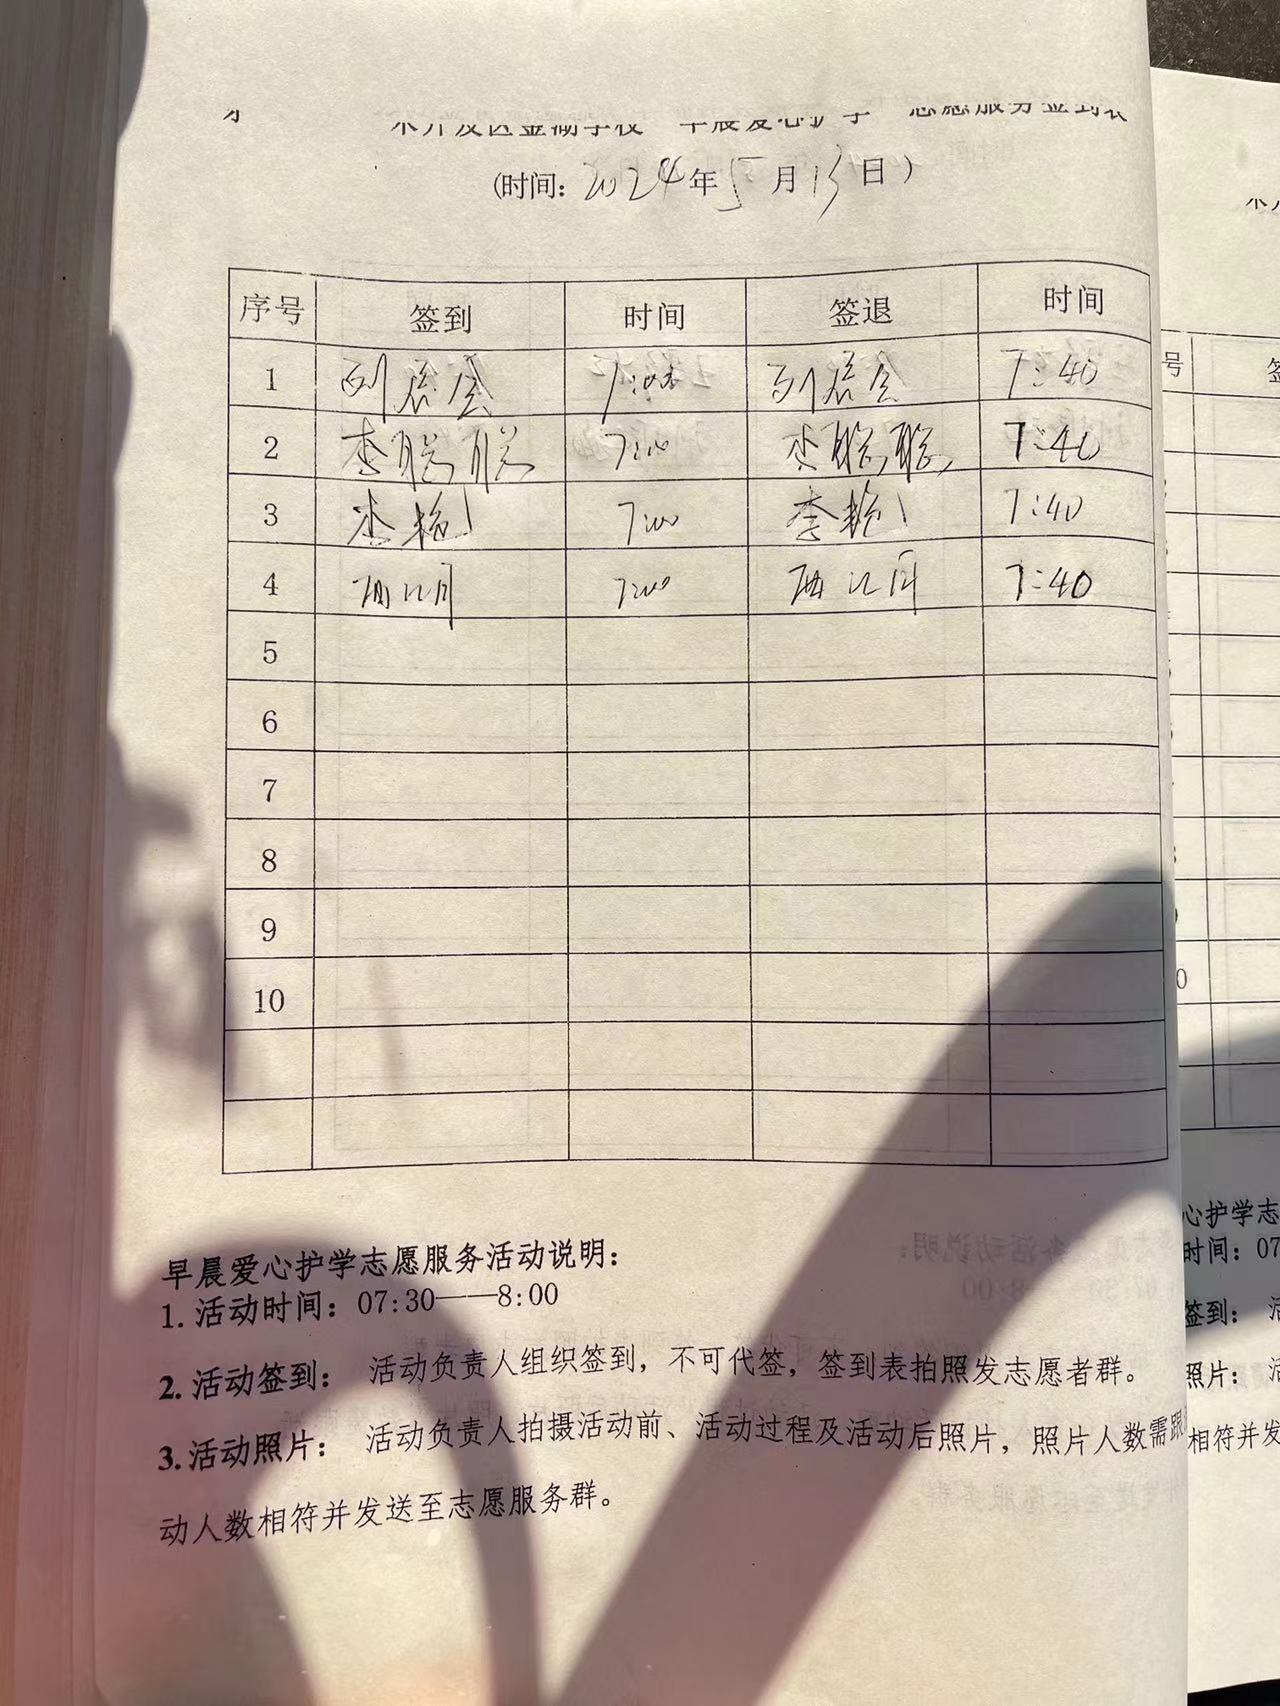 (时间：2024年5月13日)
序号 签到 时间 签退 时间
1 7:00 7:40
2 李聪聪 7:00 李聪聪 7:40
3 李艳 7:00 李艳 7:40
4 7:00 7:40
5
6
7
8
9
10
早晨爱心护学志愿服务活动说明：
1. 活动时间：07:30——8:00
2. 活动签到： 活动负责人组织签到，不可代签，签到表拍照发志愿者群。
3. 活动照片： 活动负责人拍摄活动前、活动过程及活动后照片，照片人数需跟
动人数相符并发送至志愿服务群。
号
心护学志
时间：07
签到：
照片：
相符并发